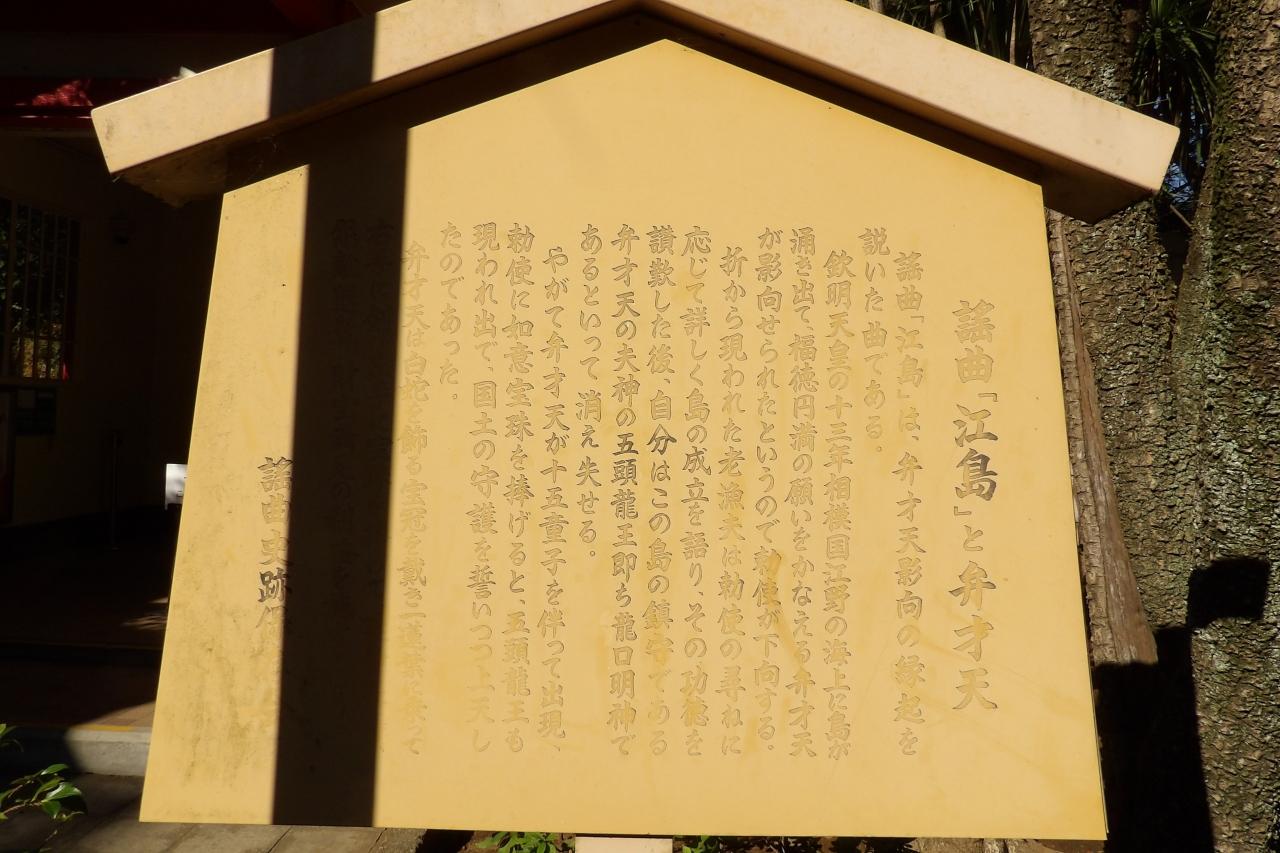 謡曲「江島」と弁才天
謡曲「江島」は、弁才天影向の縁起を
説いた曲である。
欽明天皇の十三年相模国江野の海上に島が
涌き出て、福徳円満の願いをかなえる弁才天
が影向せられたというので勅使が下向する。
折から現われた老漁夫は勅使の尋ねに
応じて詳しく島の成立を語り、その功徳を
讃歎した後、自分はこの島の鎮守である
弁才天の夫神の五頭龍王即ち龍口明神で
あるといって、消え失せる。
やがて弁才天が十五童子を伴って出現、
勅使に如意宝珠を捧げると、五頭龍王も
現われ出で、国土の守護を誓いつつ上天し
たのであった。
弁才天は白蛇を飾る宝冠を戴き二
謡曲史跡